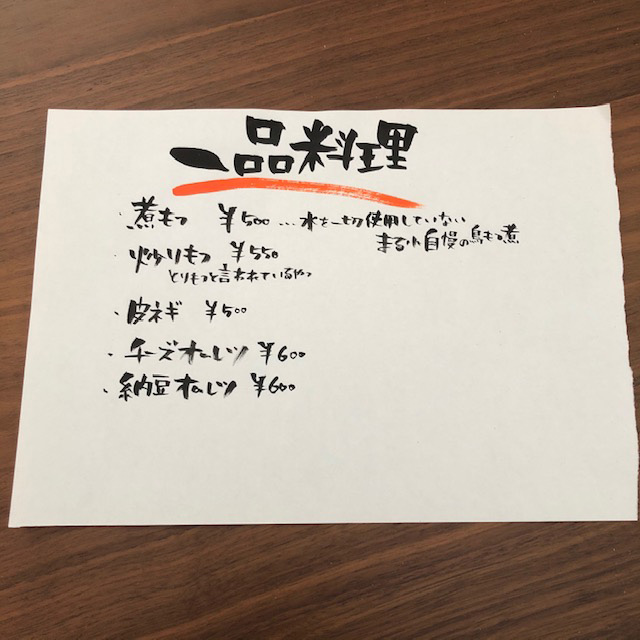 一品料理
・煮もつ ￥500 ...水を一切使用していない
まる小自慢の鳥もつ煮
・炒りもつ ￥550
とりもつと言われているやつ
・皮ネギ ￥500
・チーズオムレツ ￥600
・納豆オムレツ ￥600